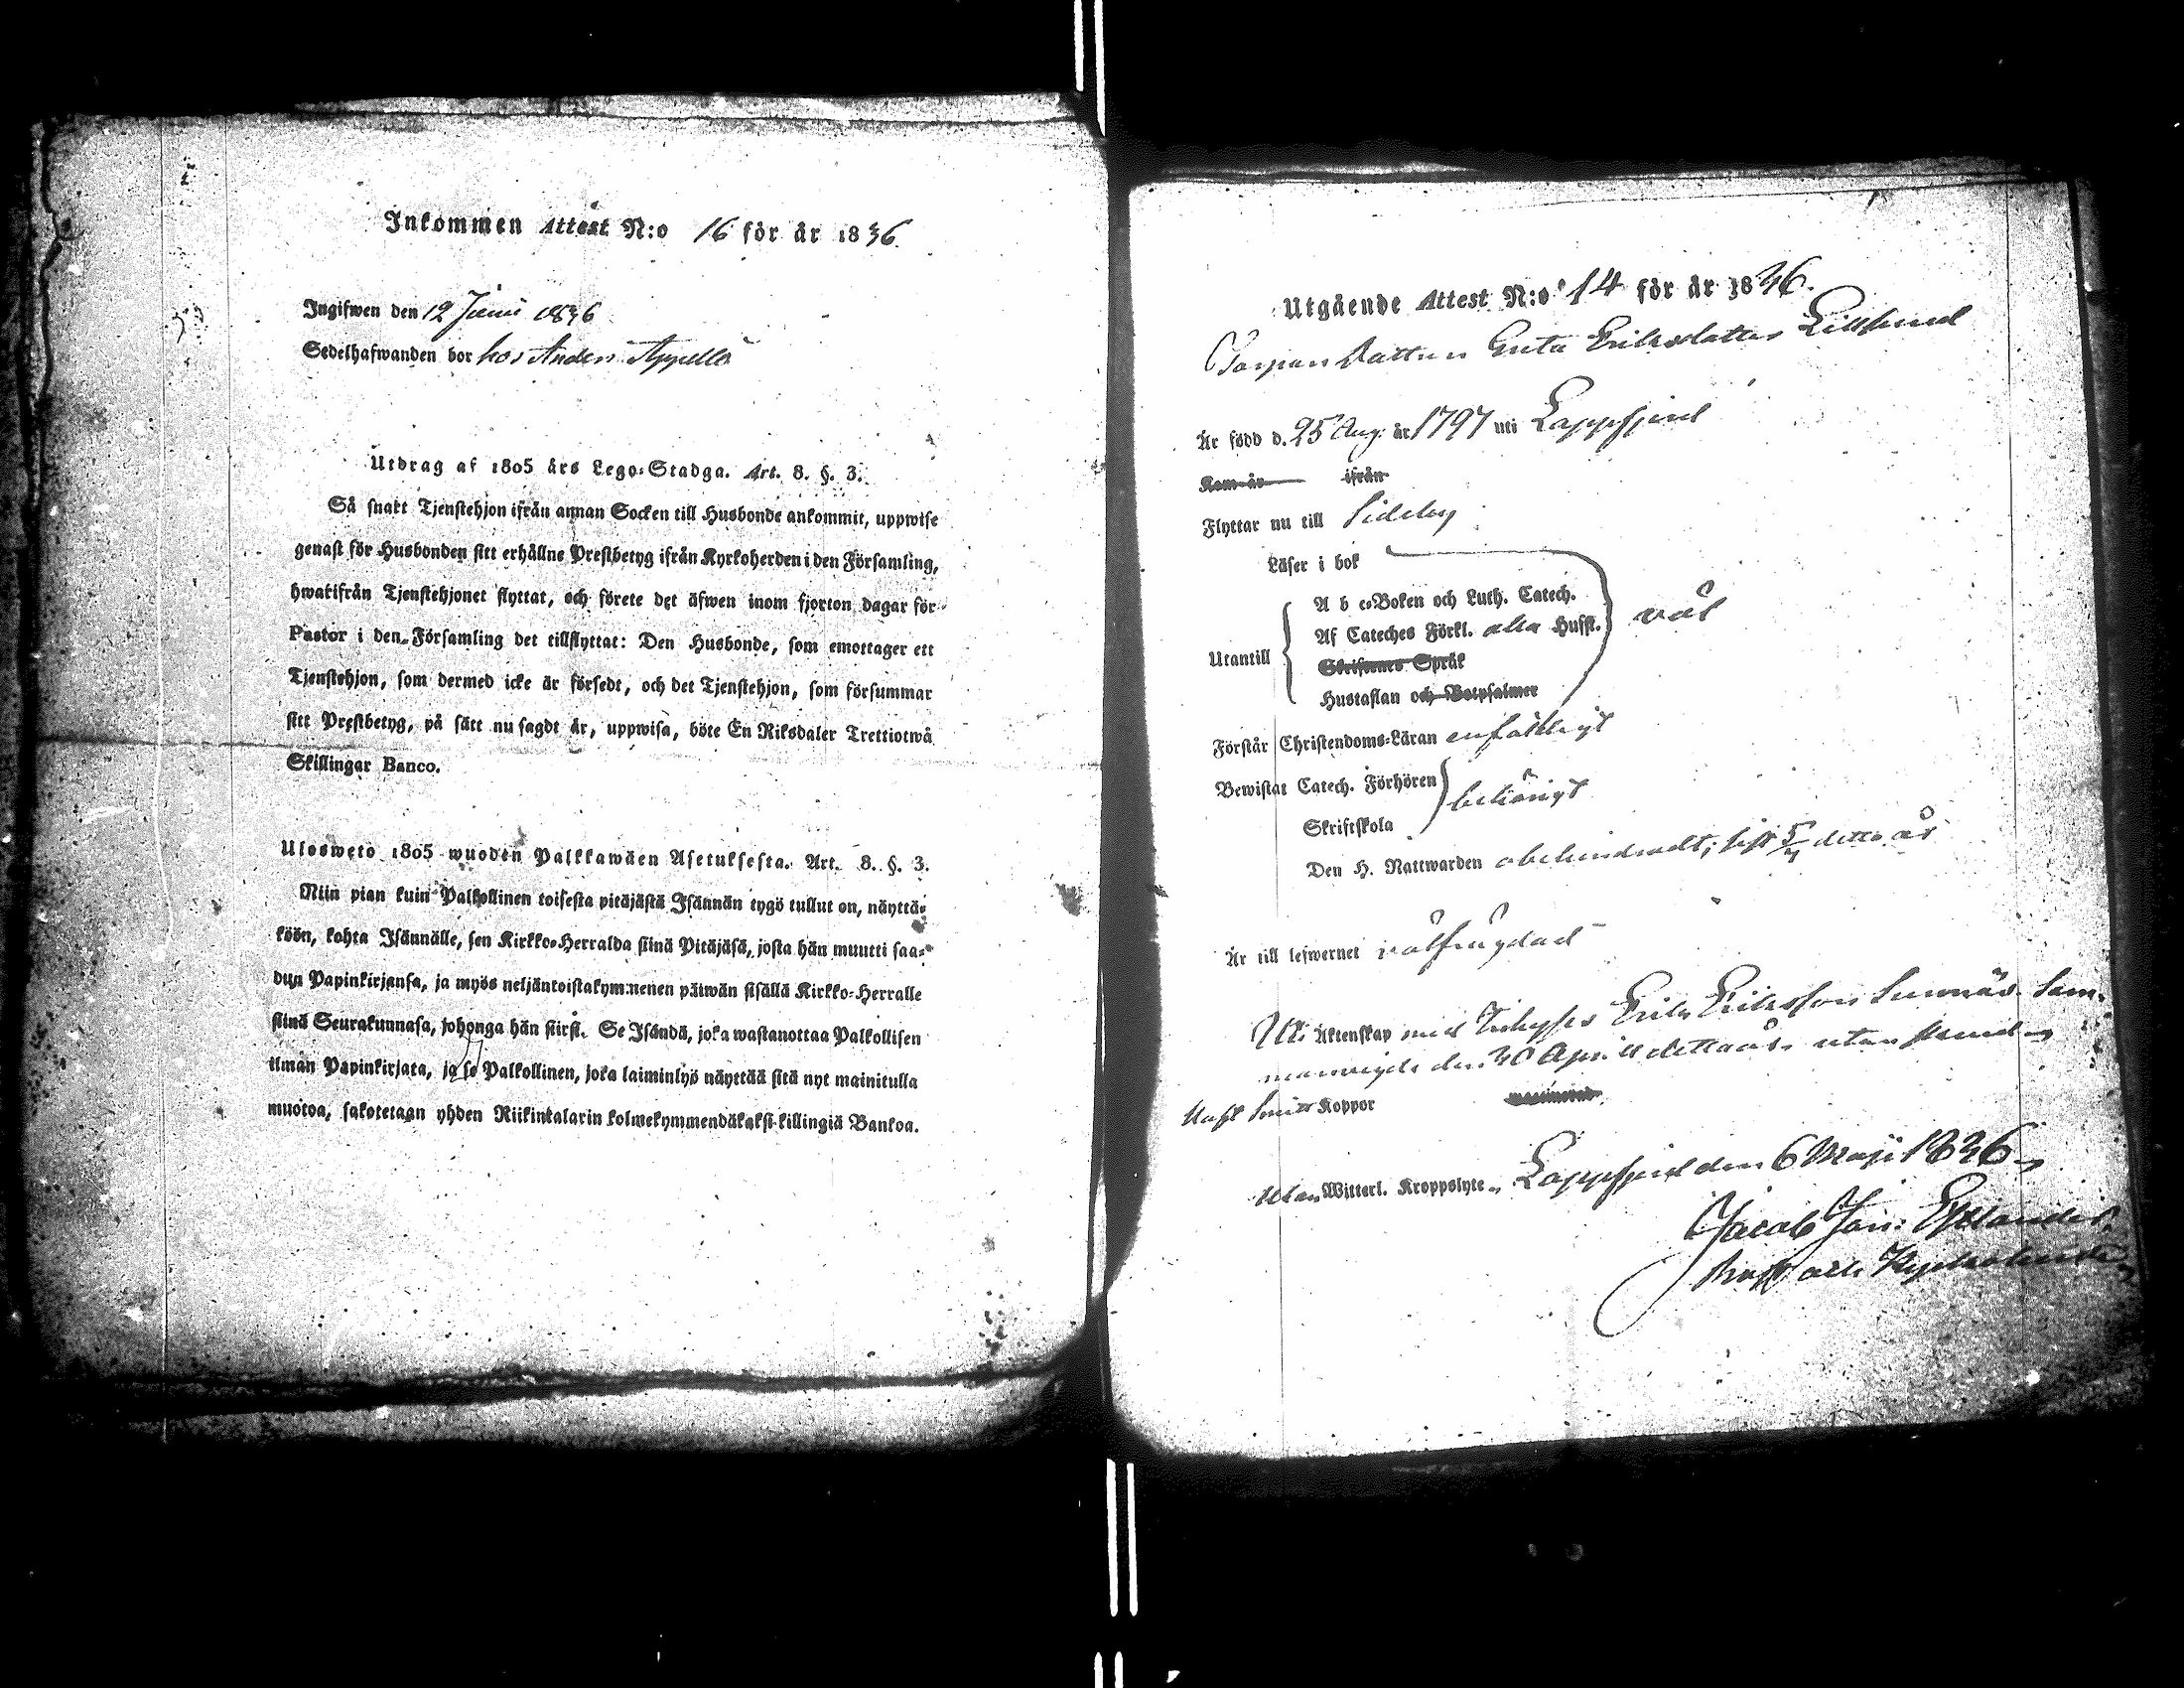 Inkommen Attest N:o 16 för år 1836
Ingifwen den 12 Junii 1836
Sedelhafwanden bor hos Anders Appellö
Utdrag af 1805 års Lego-Stadga. Art. 8. §. 3.
Så snart Tjenstehjon ifrån annan Socken till Husbonde ankommit, uppwise
genast för Husbonden sitt erhållne Prestbetyg ifrån Kyrkoherden i den Församling,
hwarifrån Tjenstehjonet flyttat, och förete det äfwen inom fjorton dagar för
Pastor i den Församling det tillflyttat: Den Husbonde, som emottager ett
Tjenstehjon, som dermed icke är försedt, och det Tjenstehjon, som försummar
sitt Prestbetyg, på sätt nu sagdt är, uppwisa, böte En Riksdaler Trettiotwå
Skillingar Banco.
Ulosweto 1805 wuoden Palkkawäen Asetuksesta. Art. 8. §. 3.
Niin pian kuin Palkollinen toisesta pitäjästä Isännän tygö tullut on, näyttä-
köön, kohta Isännälle, sen Kirkko-Herralda siinä Pitäjäsä, josta hän muutti saa-
dun Papinkirjansa, ja myös neljäntoistakymmenen päiwän sisällä Kirkko-Herralle
siinä Seurakunnasa, johonga hän siirsi. Se Isändä, joka wastanottaa Palkollisen
ilman Papinkirjata, ja se Palkollinen, joka laiminlyö näyttää sitä nyt mainitulla
muotoa, sakotetaan yhden Riikintalarin kolmekymmendäkaksi killingiä Bankoa.
Utgående Attest N:o 14 för år 1836.
Torpare Dottren Greta Eriksdotter Lillsund
Är född d. 25 Aug: år 1797 uti Lappfjerd
Kom år ifrån
Flyttar nu till Sideby
Läser i bok
A b c-Boken och Luth. Catech.
Af Cateches Förkl. alla Hufst. väl
Utantill
Skriftenes Språk
Hustaflan och Botpsalmer
Förstår Christendoms-Läran enfäldigt
Bewistat Catech. Förhören behörigt
Skriftskola
Den H. Nattwarden obehindradt; sist 5/4 detta år
Är till lefwernet välfrägdad
Uti Äktenskap med Erik Eriksson Sunnäs Sam-
manvigde den 30 April detta år utan
Haft Koppor
Utan Witterl. Kroppslyte. Lappfjerd den 6 Maji 1836
Jacob Joh: Estlander